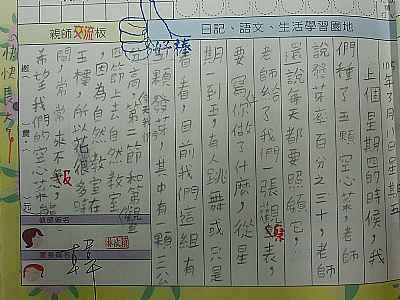 日記、語文、生活學習園地
親師交流板
好棒
105年3月18日星期五
上個星期四的時候，我
們種了五顆空心菜，老師
說發芽率百分之三十，老師
還說每天都要照顧它，
老師給了我們一張觀察表，
要寫你做了什麼，從星
期一到五，有人跳舞或只是
看看，目前我們這組有
顆發芽，其中有一顆三公
分高，第二節和第
四節上去自然教室
，因為自然教室在
五樓，所以花很多時
間，常常來不及，
希望我們的空心菜能
快長大。